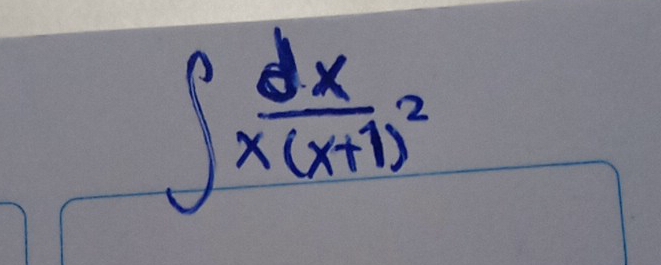 ∫ dx / x(x+1)²